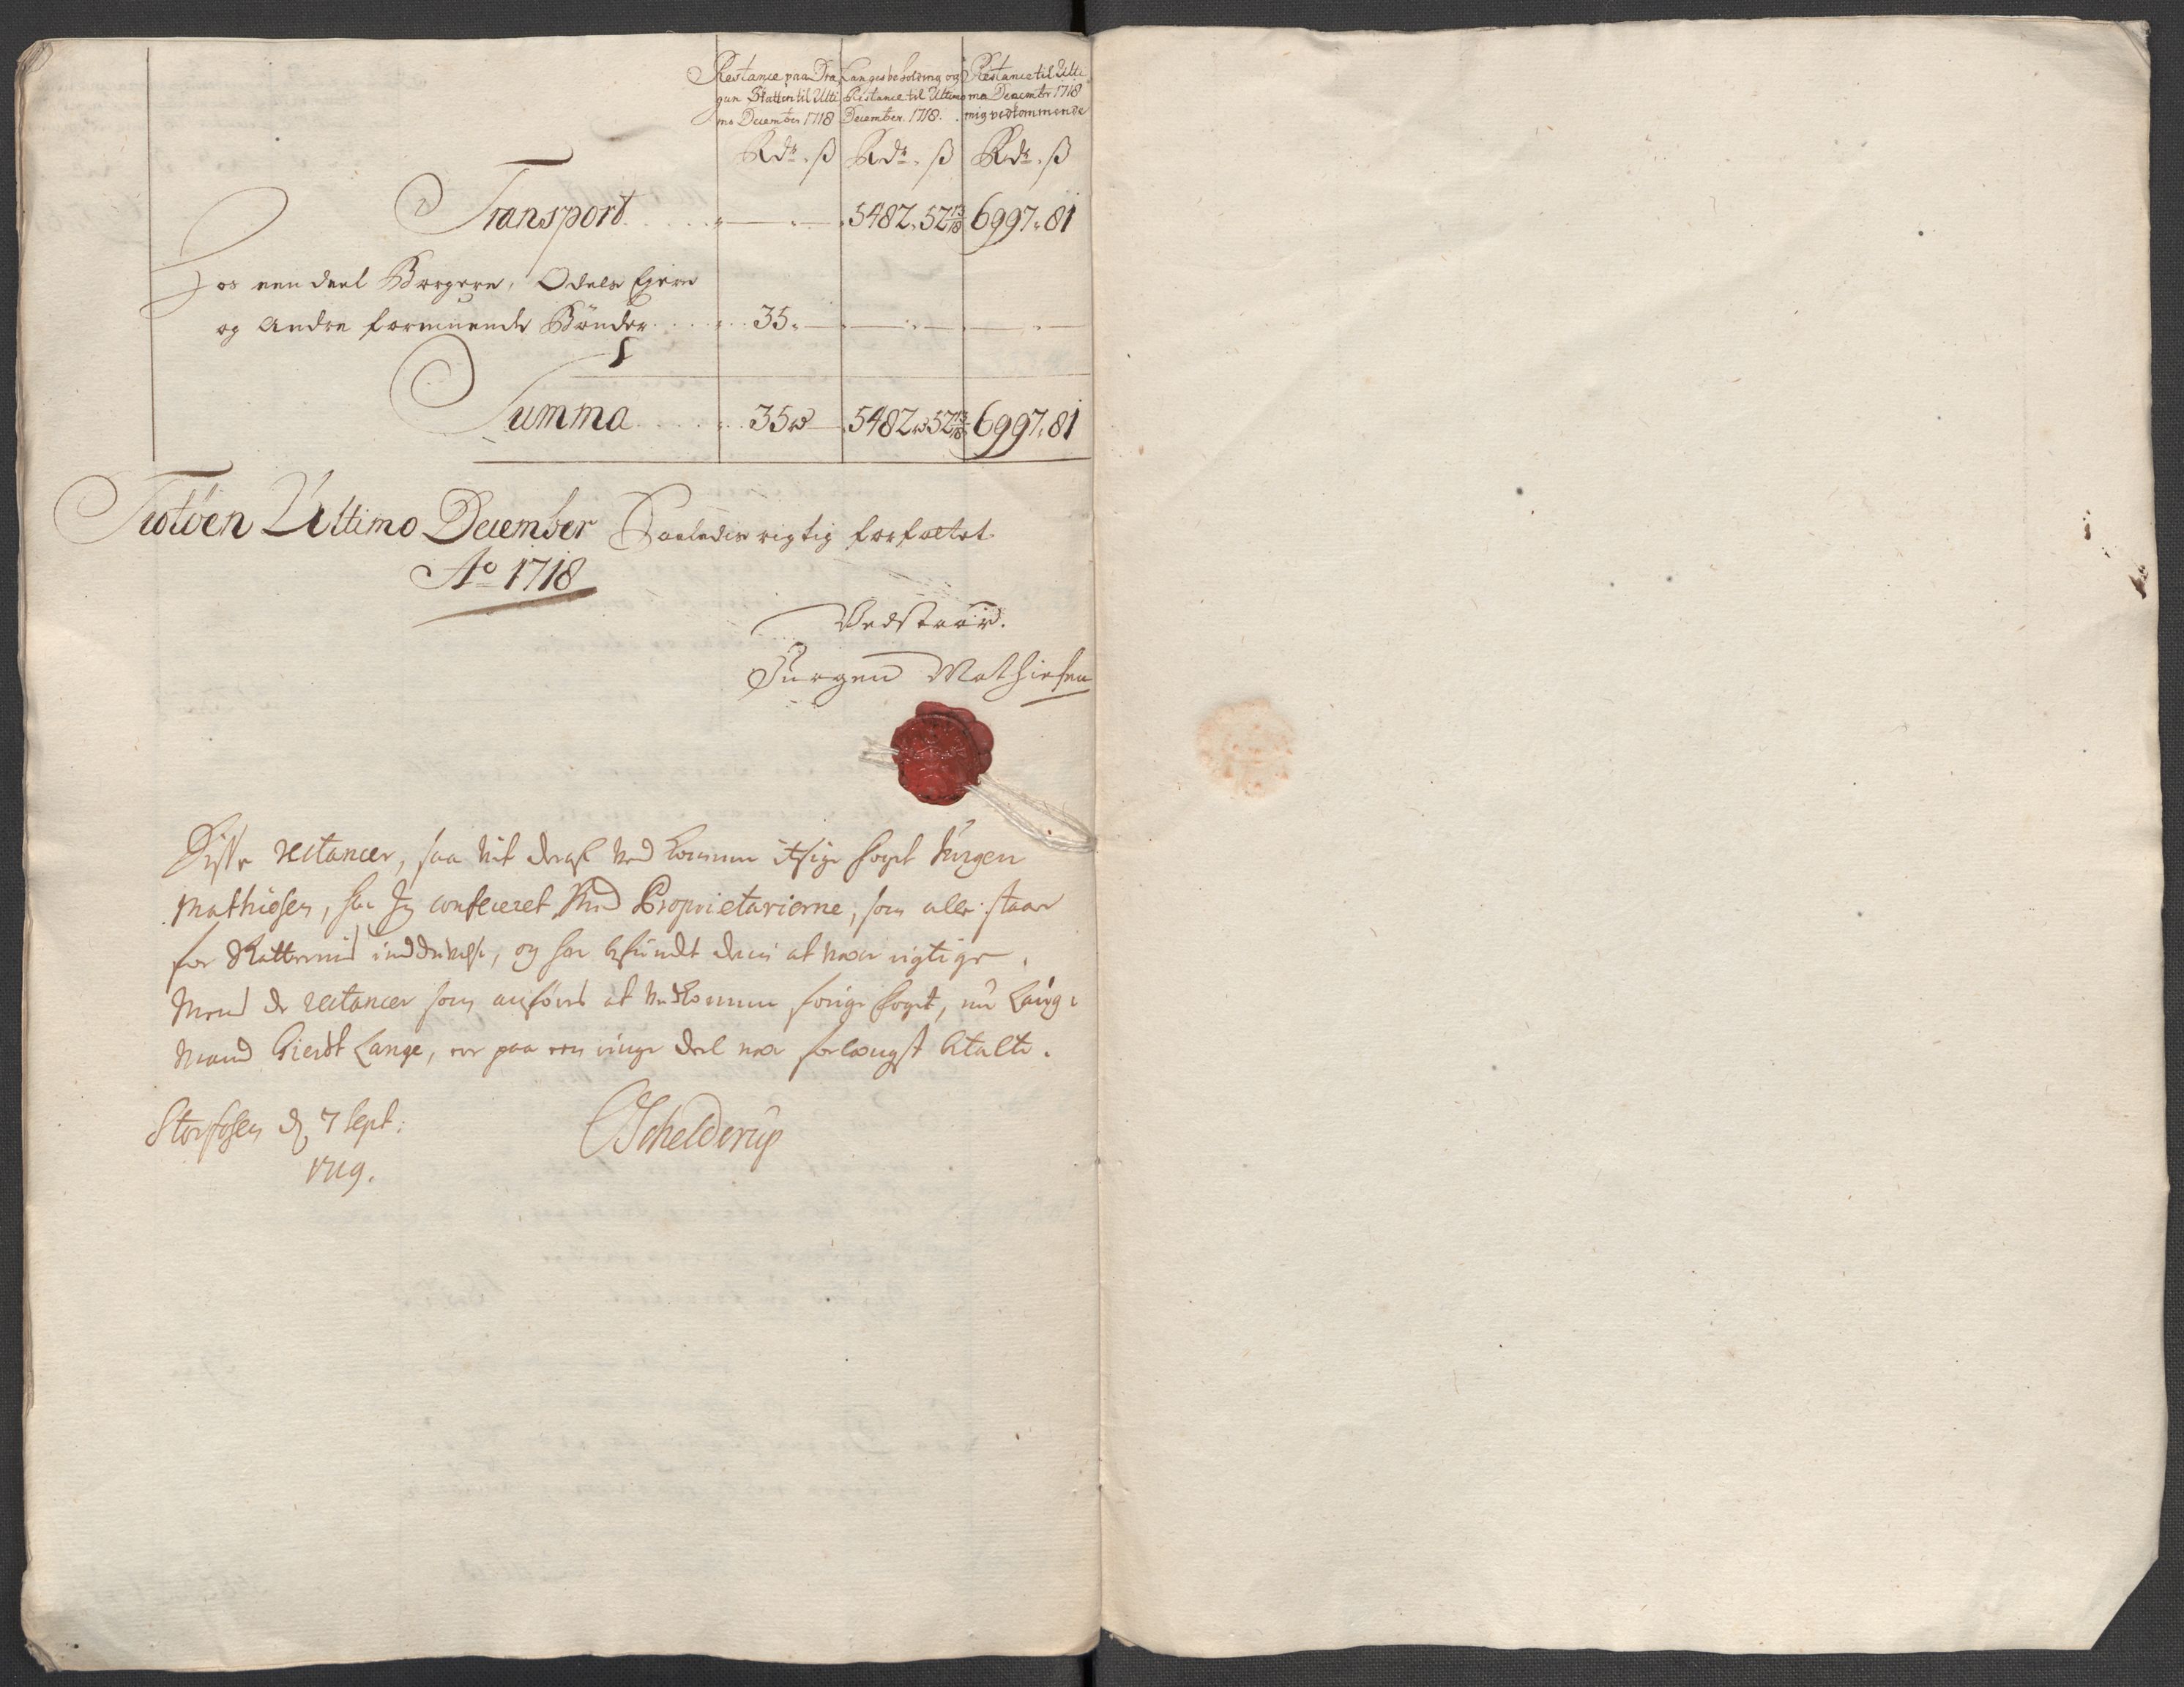 Restance paa Dra
gun Skatten til Ulti
mo December 1718
Langes beholdning og
Restance til Ultimo
December. 1718.
Restance til Ulti
mo December 1718
mig vedkommende
Rdr. ß Rdr. ß Rdr. ß
Transport 5482. 52 13/18 6997. 81
Hos een deel Borgere, Odels Eyere
og Andre formuende Bønder 35. — — —
Summa 35 5482 52 13/18 6997. 81
Ultimo December Saaledis rigtig forfattet
Ao 1718
Vedstaar.
Jürgen Mathiesen
Disse restancer, saa vit ved kommer foget Jürgen
Mathiesen, har Jeg confereret med Proprietarierne, som alle staar
for Skatternis inddrivelse, og har befundet dem at være rigtige.
Mens de restancer som anføris at vedkomme forige foget, nu Laug-
mand Giert Lange, er paa een ringe deel nær forlængst betalte.
Storfosen d 7 Sept:
1719.
Schelderup